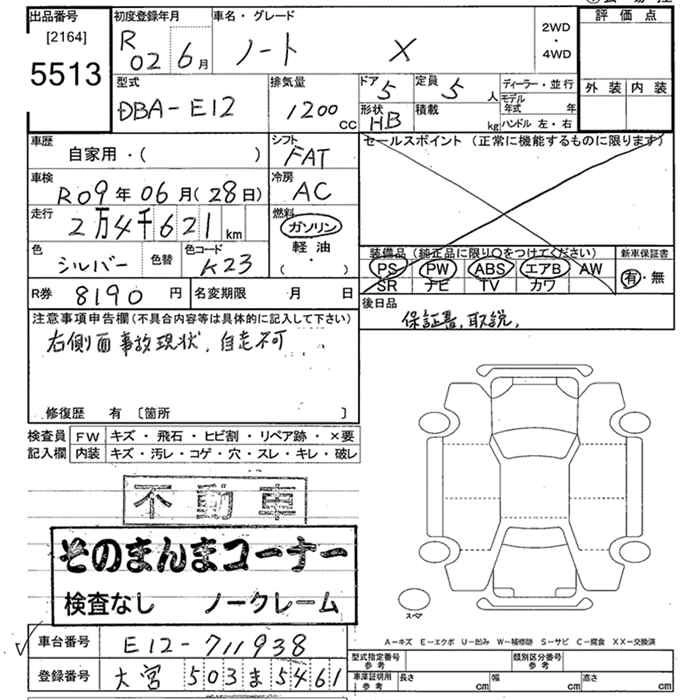 出品番号
[2164]
5513
初度登録年月
R 02 6月
車名・グレード
ノート X
2WD
・
4WD
評価点
外装 内装
型式
DBA-E12
排気量
1200cc
ドア 5
定員 5人
形状 HB
積載 kg
ディーラー・並行
モデル年式 年
ハンドル 左・右
車歴
自家用・( )
シフト
FAT
セールスポイント (正常に機能するものに限ります)
車検
R09年06月(28日)
冷房
AC
走行
2万4千621km
燃料
ガソリン
軽油
( ・ )
色
シルバー
色替
色コード
K23
装備品 (純正品に限り○をつけてください)
PS PW ABS エアB AW
SR ナビ TV カワ
新車保証書
有・無
R券 8190円
名変期限 月 日
後日品
保証書,取説,
注意事項申告欄(不具合内容等は具体的に記入して下さい)
右側面事故現状,自走不可
修復歴 有 〔箇所 〕
検査員
記入欄
FW キズ・飛石・ヒビ割・リペア跡・×要
内装 キズ・汚レ・コゲ・穴・スレ・キレ・破レ
不動車
そのまんまコーナー
検査なし ノークレーム
スペア
A-キズ E-エクボ U-凹み W-補修跡 S-サビ C-腐食 XX-交換済
車台番号 E12-711938
登録番号 大宮503ま5461
型式指定番号
参考
類別区分番号
参考
車庫証明用
参考
長さ cm 幅 cm 高さ cm